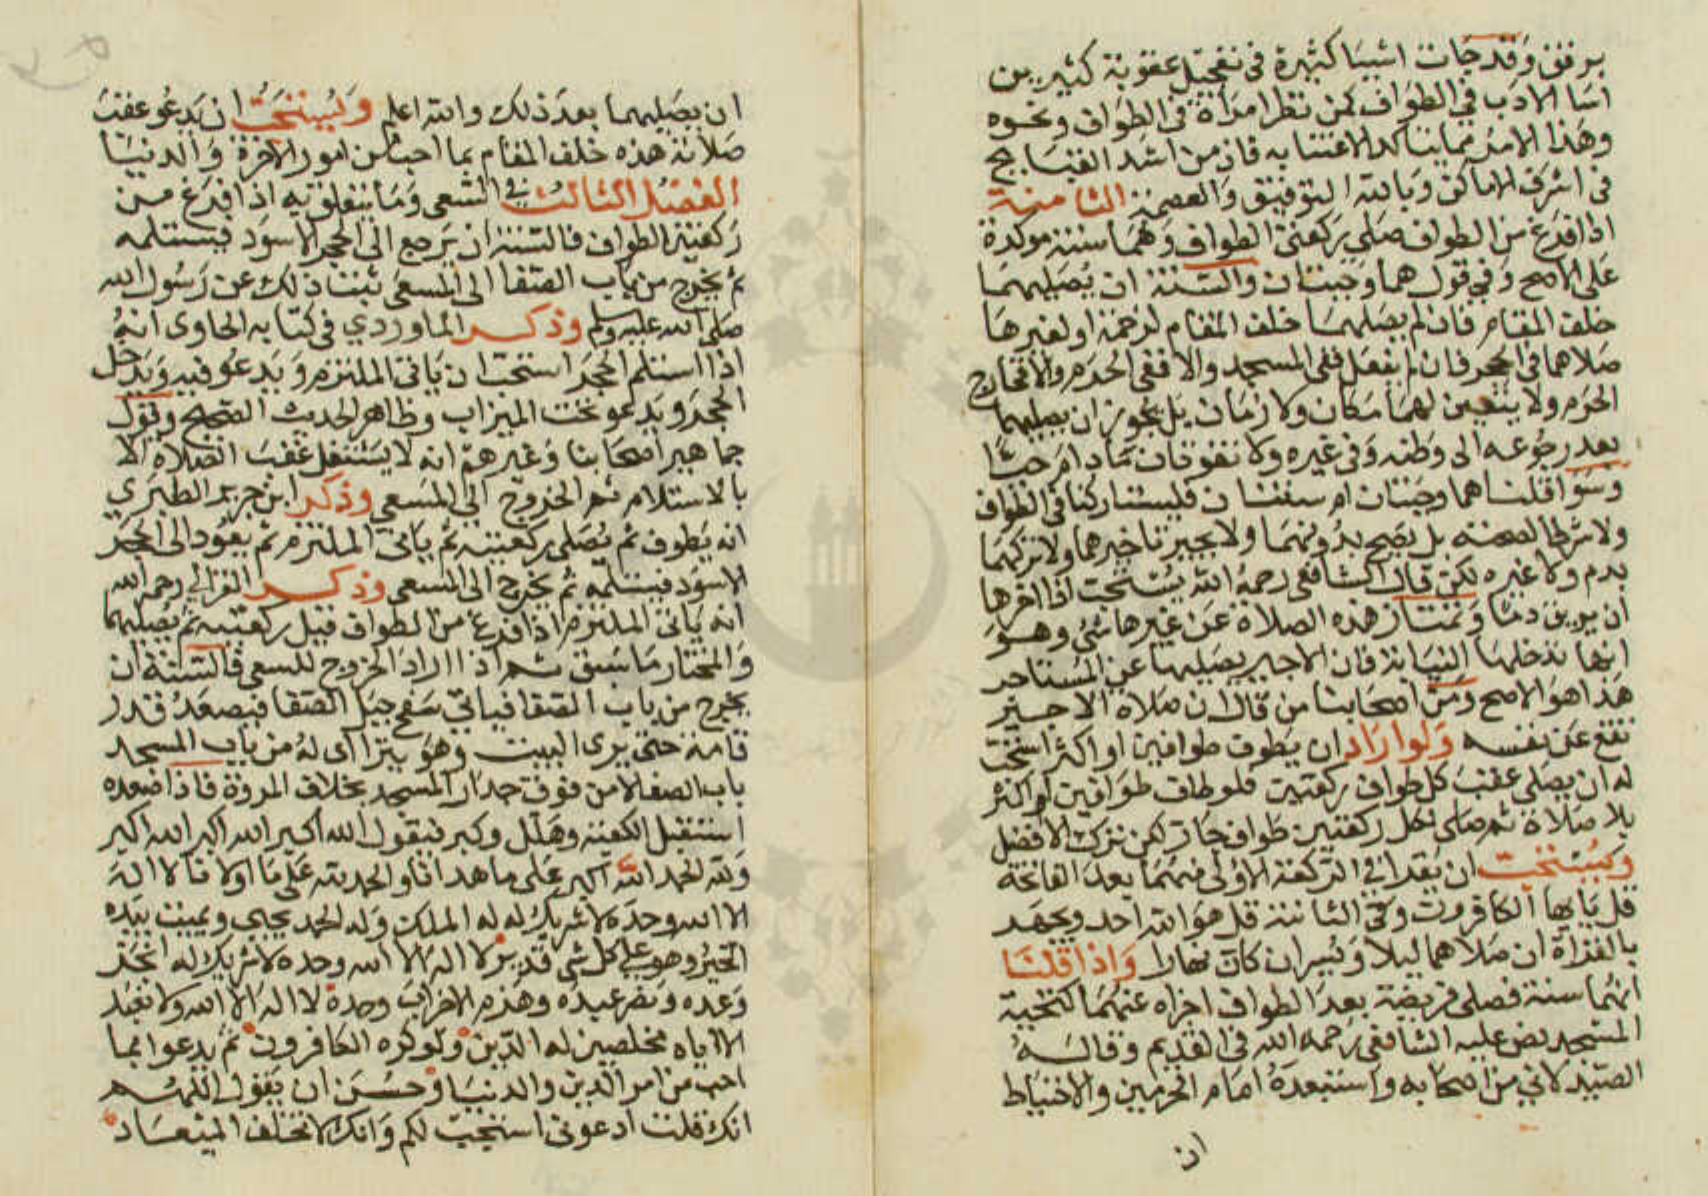 برفق وقد جات اشيا كثيرة في تعجيل عقوبة كثيرين
اسا الادب في الطواف كمن نظر امراة في الطواف ونحوه
وهذا الامر مما يتاكد الاعتنا به فان من اشد القبايح
في اشرف الاماكن وبالله التوفيق والعصمة الثامنة
اذا فرغ من الطواف صلى ركعتي الطواف وهما سنة موكدة
على الاصح وفي قول هما وجبتان والسنة ان يصليهما
خلف المقام فان لم يصلهما خلف المقام لزحمة او لغيرها
صلاهما في الحجر فان لم يفعل ففي المسجد والا ففي الحرم والا فخارج
الحرم ولا يتعين لهما مكان ولا زمان بل يجوز ان يصليهما
بعد رجوعه الى وطنه وفي غيره ولا تفوتان ما دام حيا
وسوا قلنا هما وجبتان ام سنتان فليستا ركنا في الطواف
ولا شرطا لصحته بل يصح بدونهما ولا يجبر تاخيرهما ولا تركهما
بدم ولا غيره لكن قال الشافعي رحمه الله يستحب اذا اخرها
ان يريق دما وتمتاز هذه الصلاة عن غيرها بشي وهو
انها تدخلها النيابة فان الاجير يصليها عن المستاجر
هذا هو الاصح ومن اصحابنا من قال ان صلاة الاجير
تقع عن نفسه ولو اراد ان يطوف طوافين او اكثر استحب
له ان يصلي عقب كل طواف ركعتين فلو طاف طوافين او اكثر
بلا صلاة ثم صلى لكل ركعتين طواف جاز لكن ترك الافضل
ويستحب ان يقرا في الركعة الاولى منهما بعد الفاتحة
قل يايها الكافرون وفي الثانية قل هو الله احد ويجهر
بالقراة ان صلاهما ليلا ويسر ان كان نهارا واذا قلنا
انهما سنة فصلى فريضة بعد الطواف اجزاه عنهما كتحية
المسجد نص عليه الشافعي رحمه الله في القديم وقاله
الصيدلاني من اصحابه واستبعده امام الحرمين والاحتياط
ان
ان يصليهما بعد ذلك والله اعلم ويستحب ان يدعو عقب
صلاته هذه خلف المقام بما احب من امور الاخرة والدنيا
الفصل الثالث في السعي وما يتعلق به اذا فرغ من
ركعتي الطواف فالسنة ان يرجع الى الحجر الاسود فيستلمه
ثم يخرج من باب الصفا الى المسعى ثبت ذلك عن رسول الله
صلى الله عليه وسلم وذكر الماوردي في كتابه الحاوي انه
اذا استلم الحجر استحب ان ياتي الملتزم ويدعو فيه ويدخل
الحجر ويدعو تحت الميزاب وظاهر الحديث الصحيح وقول
جماهير اصحابنا وغيرهم انه لا يشتغل عقب الصلاة الا
بالاستلام ثم الخروج الى المسعى وذكر ابن جرير الطبري
انه يطوف ثم يصلي ركعتيه ثم ياتي الملتزم ثم يعود الى الحجر
الاسود فيستلمه ثم يخرج الى المسعى وذكر الغزالي رحمه الله
انه ياتي الملتزم اذا فرغ من الطواف قبل ركعتيه ثم يصليهما
والمختار ما سبق ثم اذا اراد الخروج للسعي فالسنة ان
يخرج من باب الصفا فياتي سفح جبل الصفا فيصعد قدر
قامة حتى يرى البيت وهو يتراآى له من باب المسجد
باب الصفا لا من فوق جدار المسجد بخلاف المروة فاذا صعده
استقبل الكعبة وهلل وكبر فيقول الله اكبر الله اكبر الله اكبر
ولله الحمد الله اكبر على ما هدانا والحمد لله على ما اولانا لا اله
الا الله وحده لا شريك له له الملك وله الحمد يحيي ويميت بيده
الخير وهو على كل شي قدير لا اله الا الله وحده لا شريك له انجز
وعده ونصر عبده وهزم الاحزاب وحده لا اله الا الله ولا نعبد
الا اياه مخلصين له الدين ولو كره الكافرون ثم يدعوا بما
احب من امر الدين والدنيا وحسن ان يقول اللهم
انك قلت ادعوني استجب لكم وانك لا تخلف الميعاد